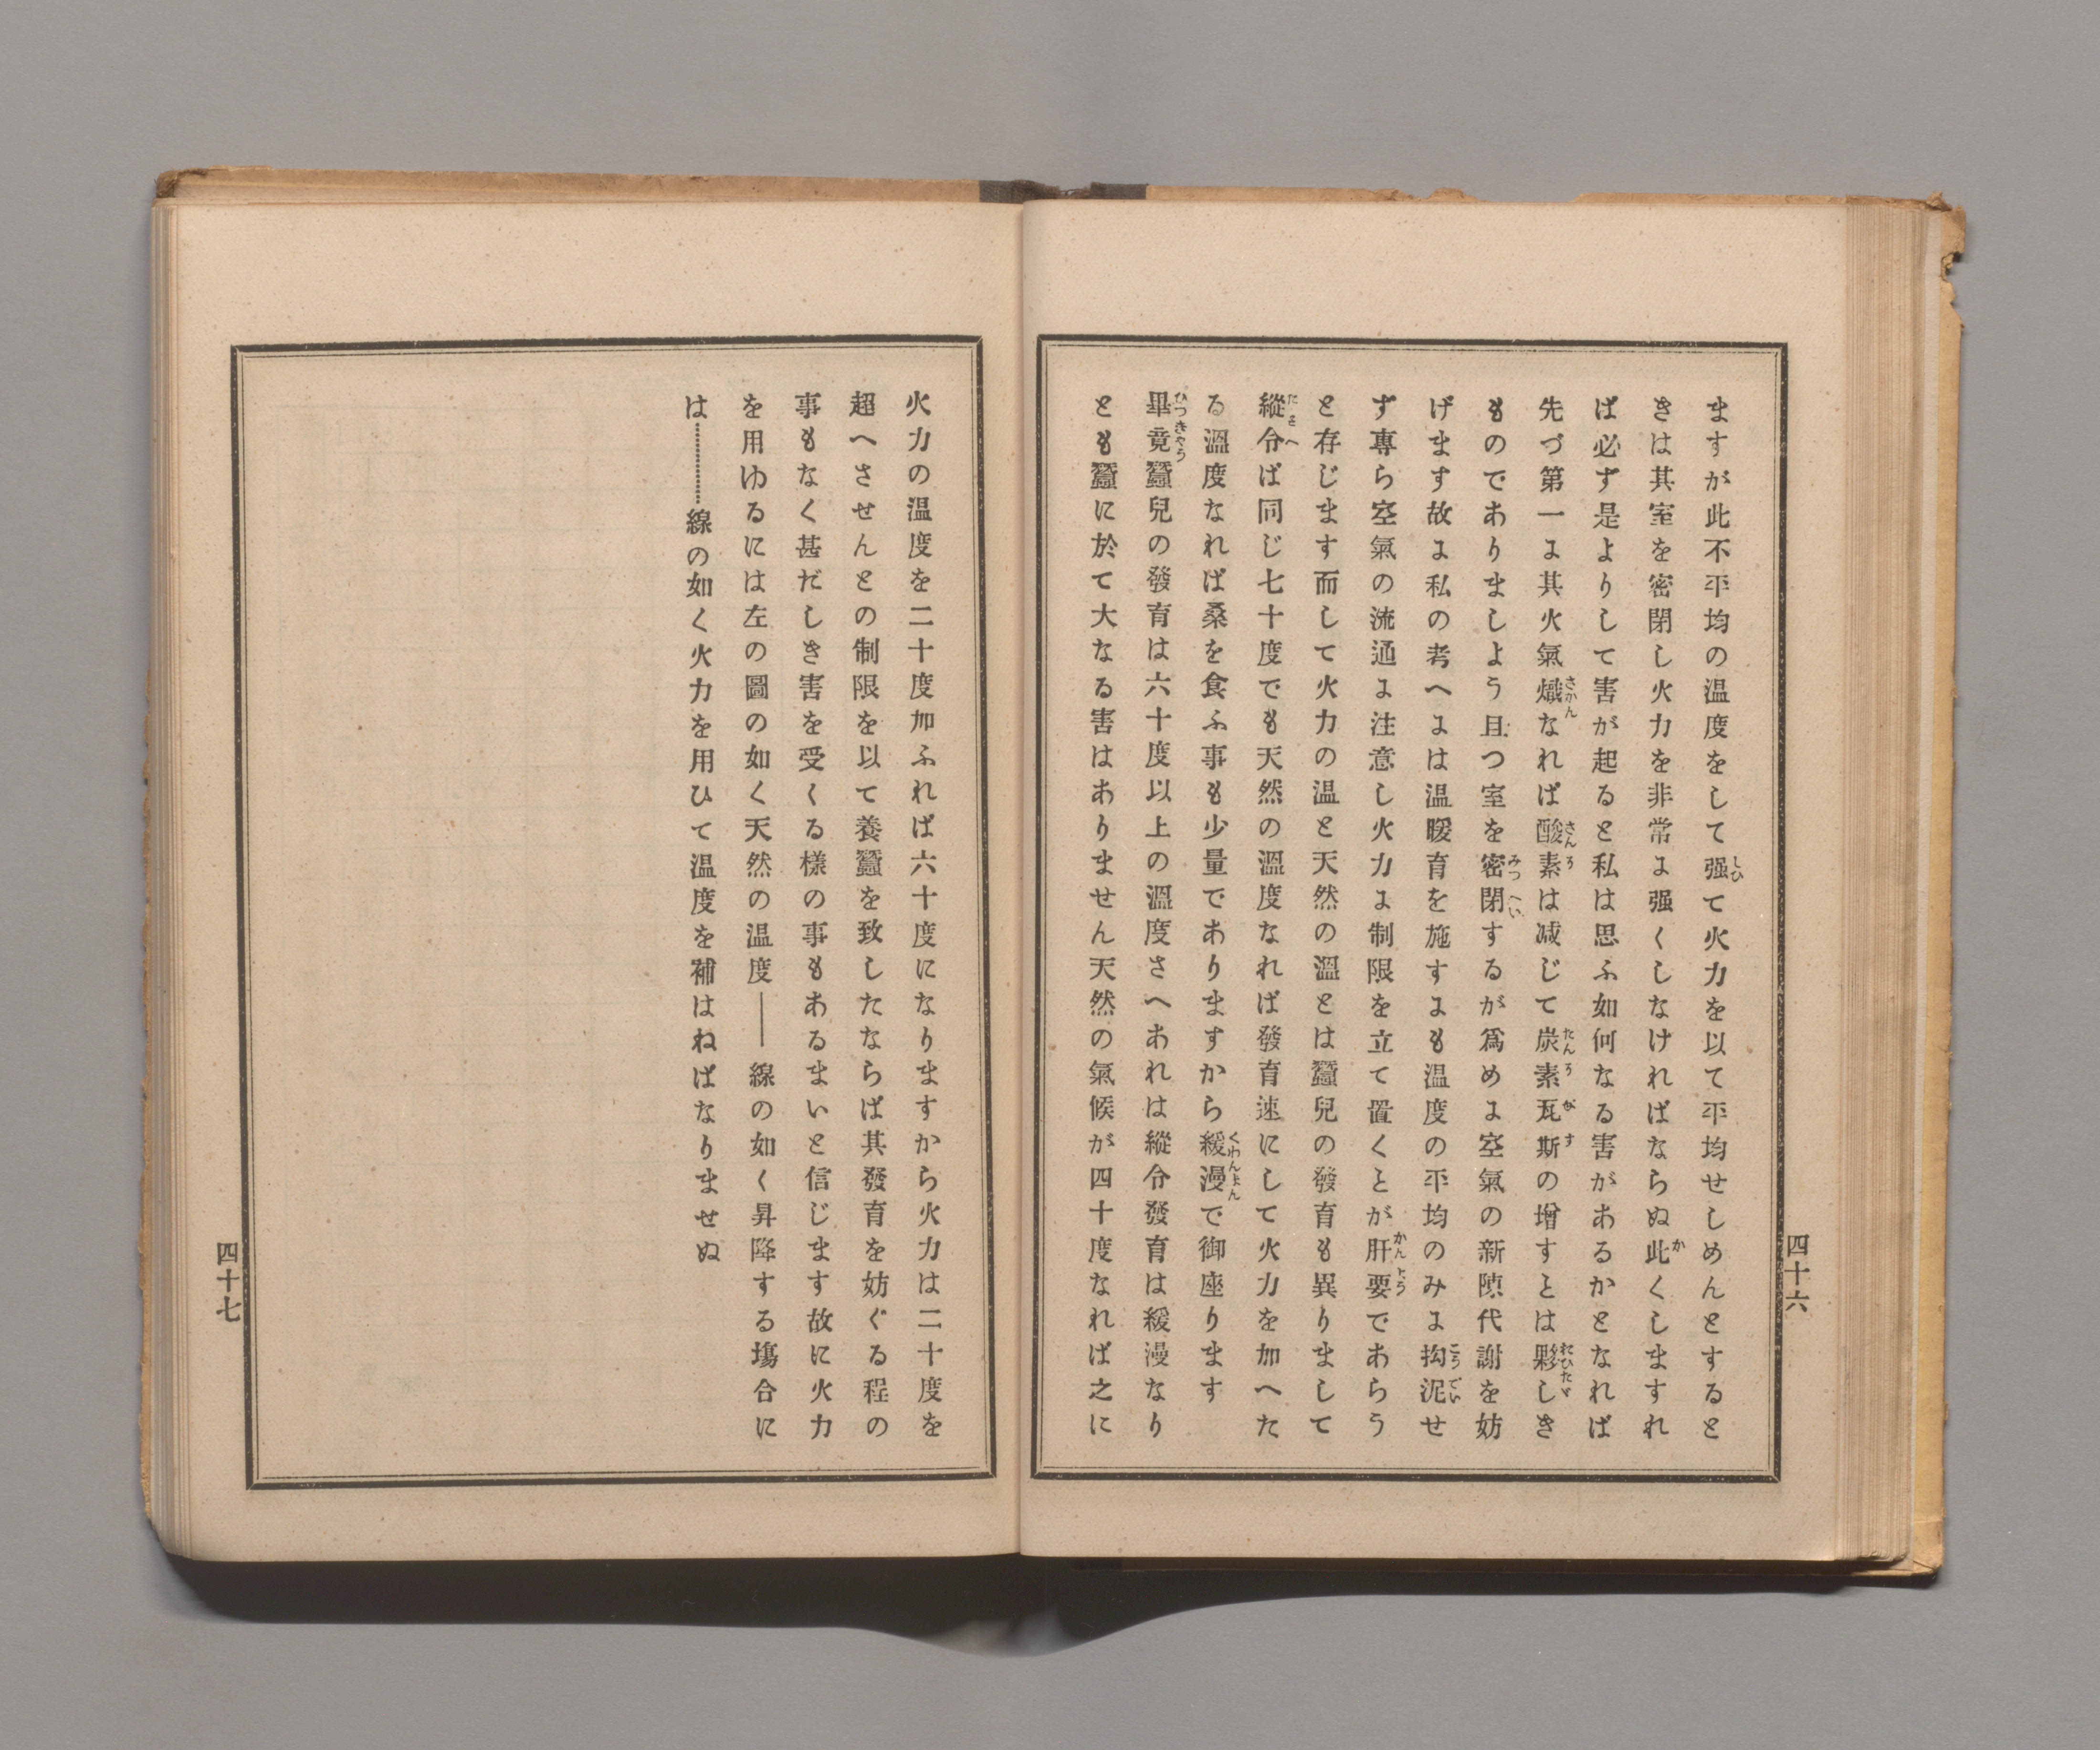 ますが此不平均の温度をして强て火力を以て平均せしめんとすると
きは其室を密閉し火力を非常に强くしなければならぬ此くしますれ
ば必ず是よりして害が起ると私は思ふ如何なる害があるかとなれば
先づ第一に其火氣熾なれば酸素は减じて炭素瓦斯の增すとは夥しき
ものでありましよう且つ室を密閉するが爲めに空氣の新陳代謝を妨
げます故に私の考へには温暖育を施すにも温度の平均のみに拘泥せ
ず專ら空氣の流通に注意し火力に制限を立て置くとが肝要であらう
と存じます而して火力の温と天然の溫とは蠶兒の發育も異りまして
縱令ば同じ七十度でも天然の溫度なれば發育速にして火力を加へた
る溫度なれば桑を食ふ事も少量でありますから緩漫で御座ります
畢竟蠶兒の發育は六十度以上の溫度さへあれは縱令發育は緩漫なり
とも蠶に於て大なる害はありません天然の氣候が四十度なれば之に
四十六
火力の温度を二十度加ふれば六十度になりますから火力は二十度を
超へさせんとの制限を以て養蠶を致したならば其發育を妨ぐる程の
事もなく甚だしき害を受くる樣の事もあるまいと信じます故に火力
を用ゆるには左の圖の如く天然の温度——線の如く昇降する塲合に
は…………線の如く火力を用ひて温度を補はねばなりませぬ
四十七